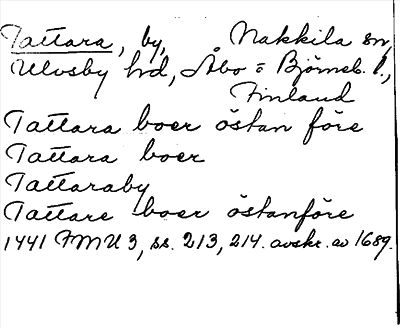 Tattara, by, Nakkila sn,
Ulvsby hd, Åbo = Björneb. l.,
Finland
Tattara boer östan före
Tattara boer
Tattaraby
Tattare boer östanföre
1441 FMU 3, ss. 213, 214. avskr. av 1689.